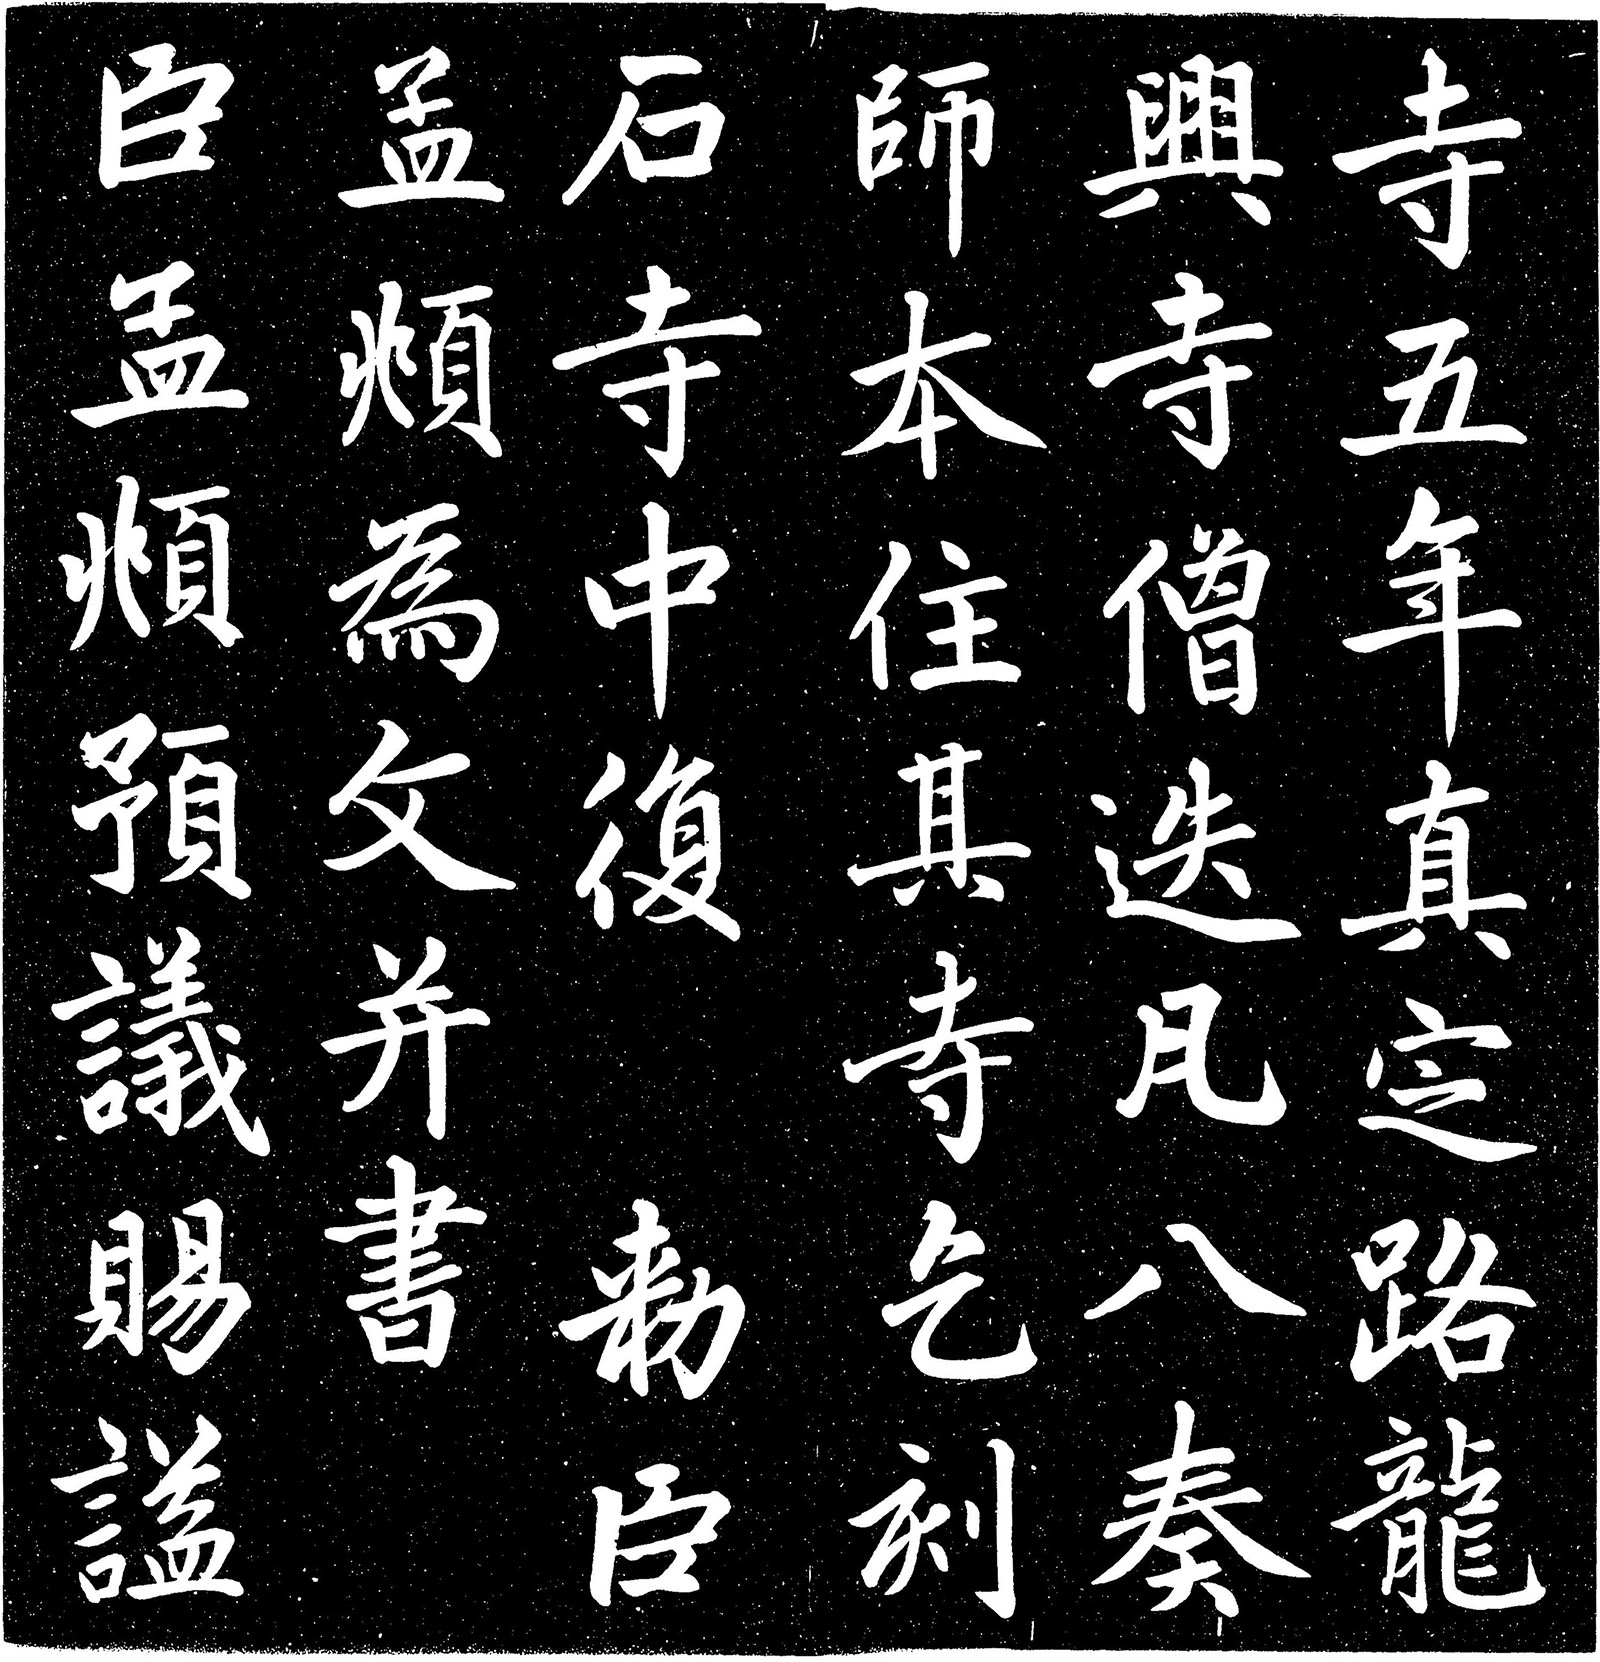 寺五年真定路龍
興寺僧迭凡八奏
師本住其寺乞刻
石寺中復 勑臣
孟頫為文并書
臣孟頫預議賜謚